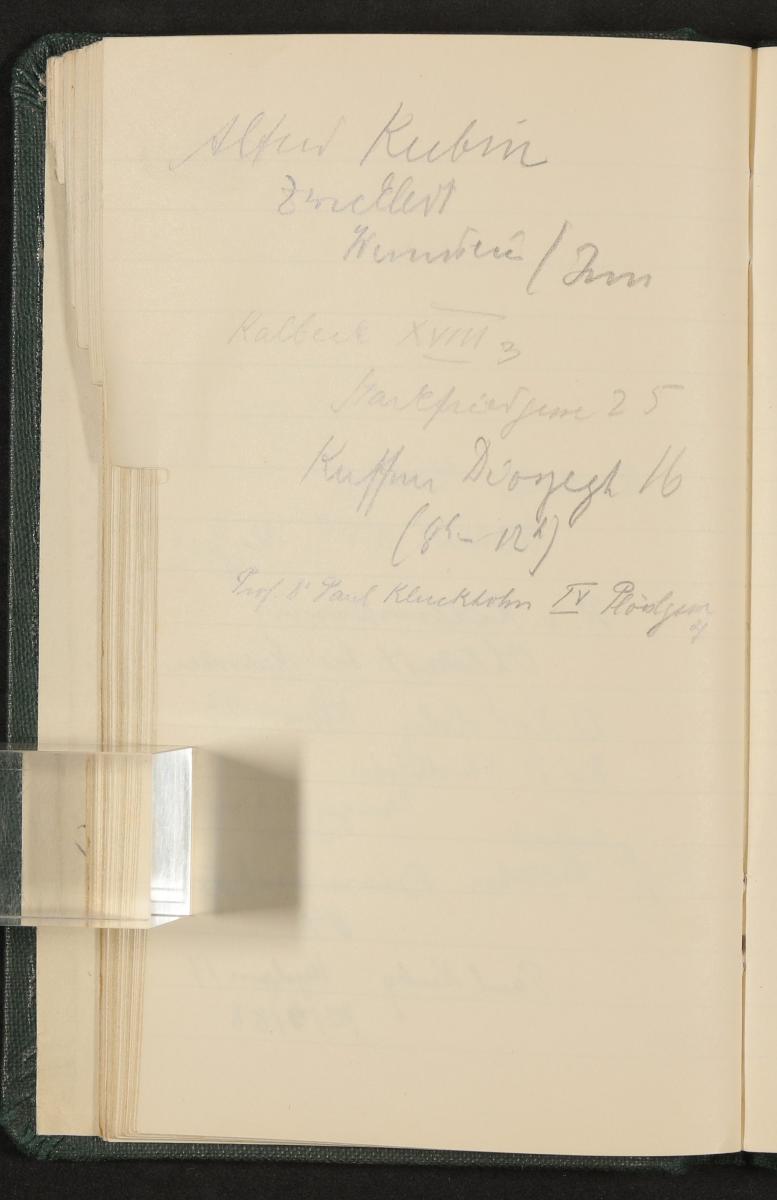 Alfred Kubin
Zwickledt
Wernstein / Inn
Kalbeck XVIII 3
Starkfriedgasse 25
Kuffner Dioszegh 16
(8h – 12h)
Prof. Dr Paul Kluckhohn IV Plößlgasse